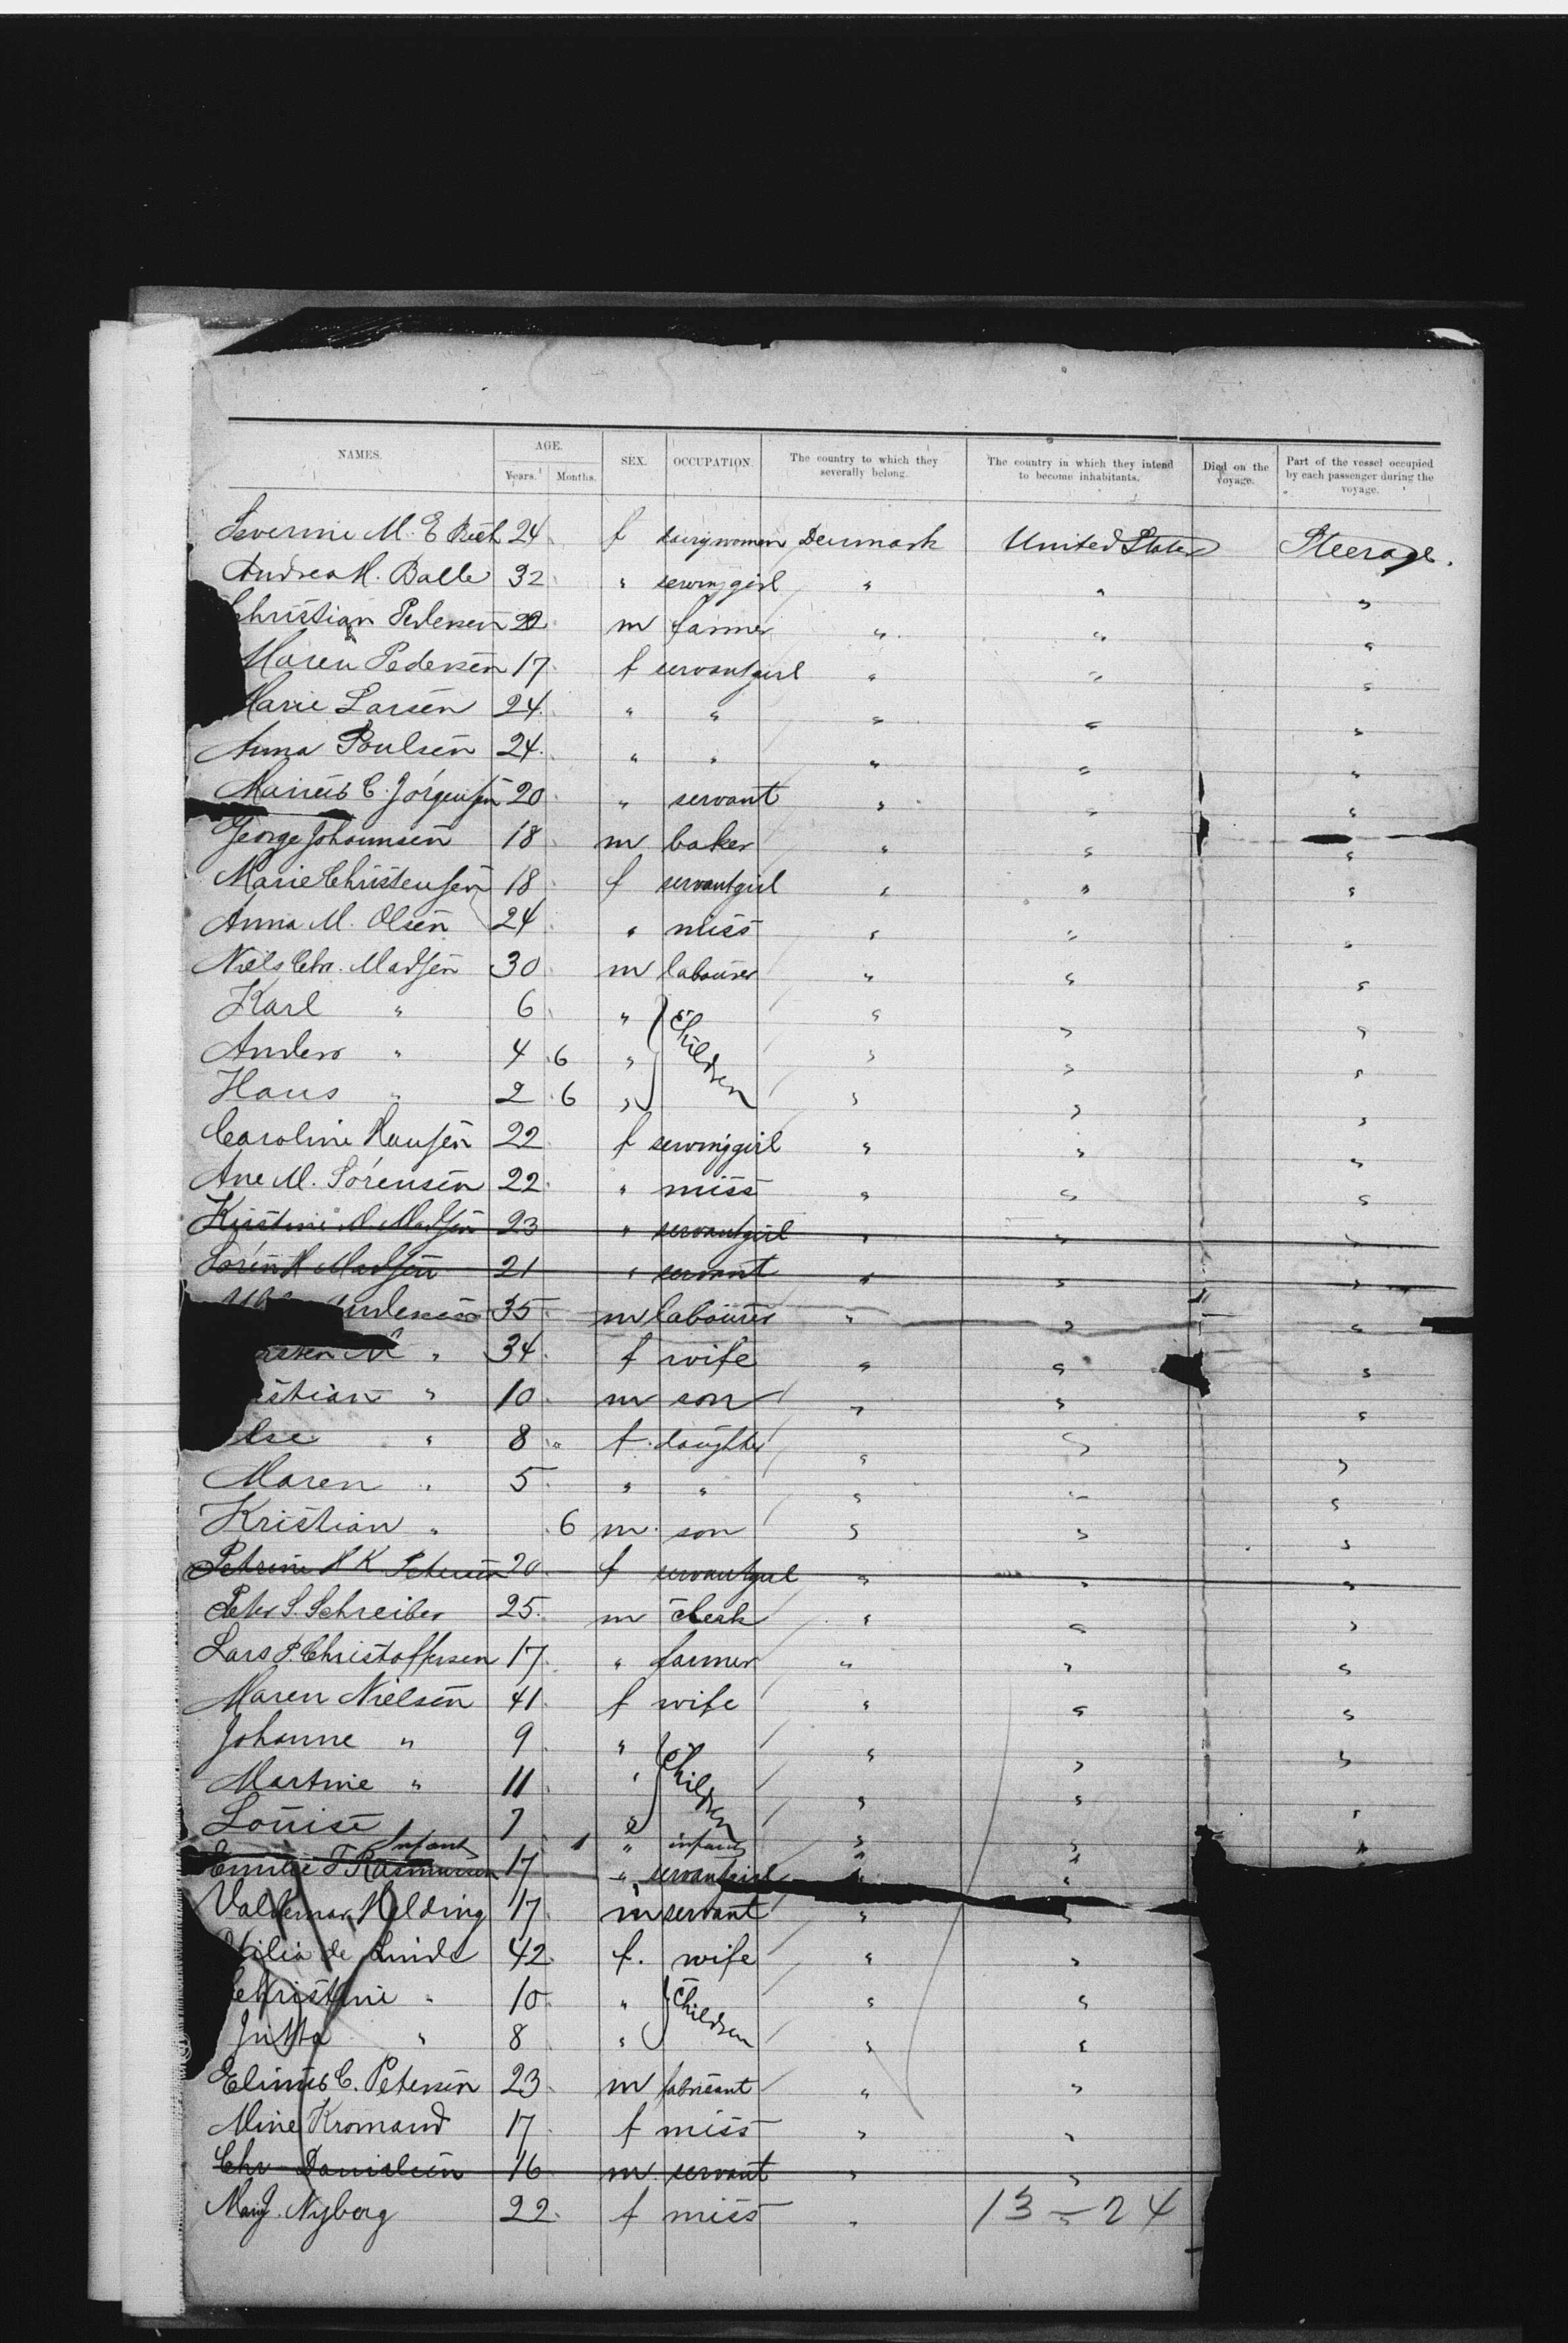 NAMES. AGE. SEX. OCCUPATION. The country to which they severally belong. The country in which they intend to become inhabitants. Died on the voyage. Part of the vessel occupied by each passenger during the voyage.
Years. Months.
Severine M. E 24 f dairywomen Denmark United States Steerage.
Andrea M. Balle 32 " sewinggirl " " "
Christian Pedersen 22 m farmer " " "
Maren Pedersen 17 f servantgirl " " "
Marie Larsen 24 " " " " "
Anna Poulsen 24 " " " " "
Marius C. Jörgensen 20 " servant " " "
George Johannsen 18 m baker " " "
Marie Christensen 18 f servantgirl " " "
Anna M. Olsen 24 " miss " " "
Niels Chr. Madsen 30 m labourer " " "
Karl " 6 " Children " " "
Anders " 4 6 " " " "
Hans " 2 6 " " " "
Caroline Hansen 22 f sewinggirl " " "
Ane M. Sörensen 22 " miss " " "
Kirstine M. Madsen 23 " servantgirl " " "
Sören H Madsen 21 " servant " " "
35 m labourer " " "
M " 34 f wife " " "
stian " 10 m son " " "
lse " 8 " f daughter " " "
Maren " 5 " " " " "
Kristian " 6 m son " " "
Petrine H K Petersen 20 f servantgirl " " "
Peter S. Schreiber 25 m clerk " " "
Lars P. Christoffersen 17 " farmer " " "
Maren Nielsen 41 f wife " " "
Johanne " 9 " Children " " "
Martine " 11 " " " "
Louise 7 " " " "
Infant 1 " infant " " "
Emilie F Rasmussen 17 " servantgirl " " "
Valdemar Helding 17 m servant " "
de Linde 42 f. wife " "
Christine " 10 " Children " "
Jutta " 8 " " "
Elinus C. Petersen 23 m fabricant " "
Mine Kromand 17 f miss " "
Chr Danielsen 16 m servant " "
Mary. Nyborg 22 f miss " "
13 - 24